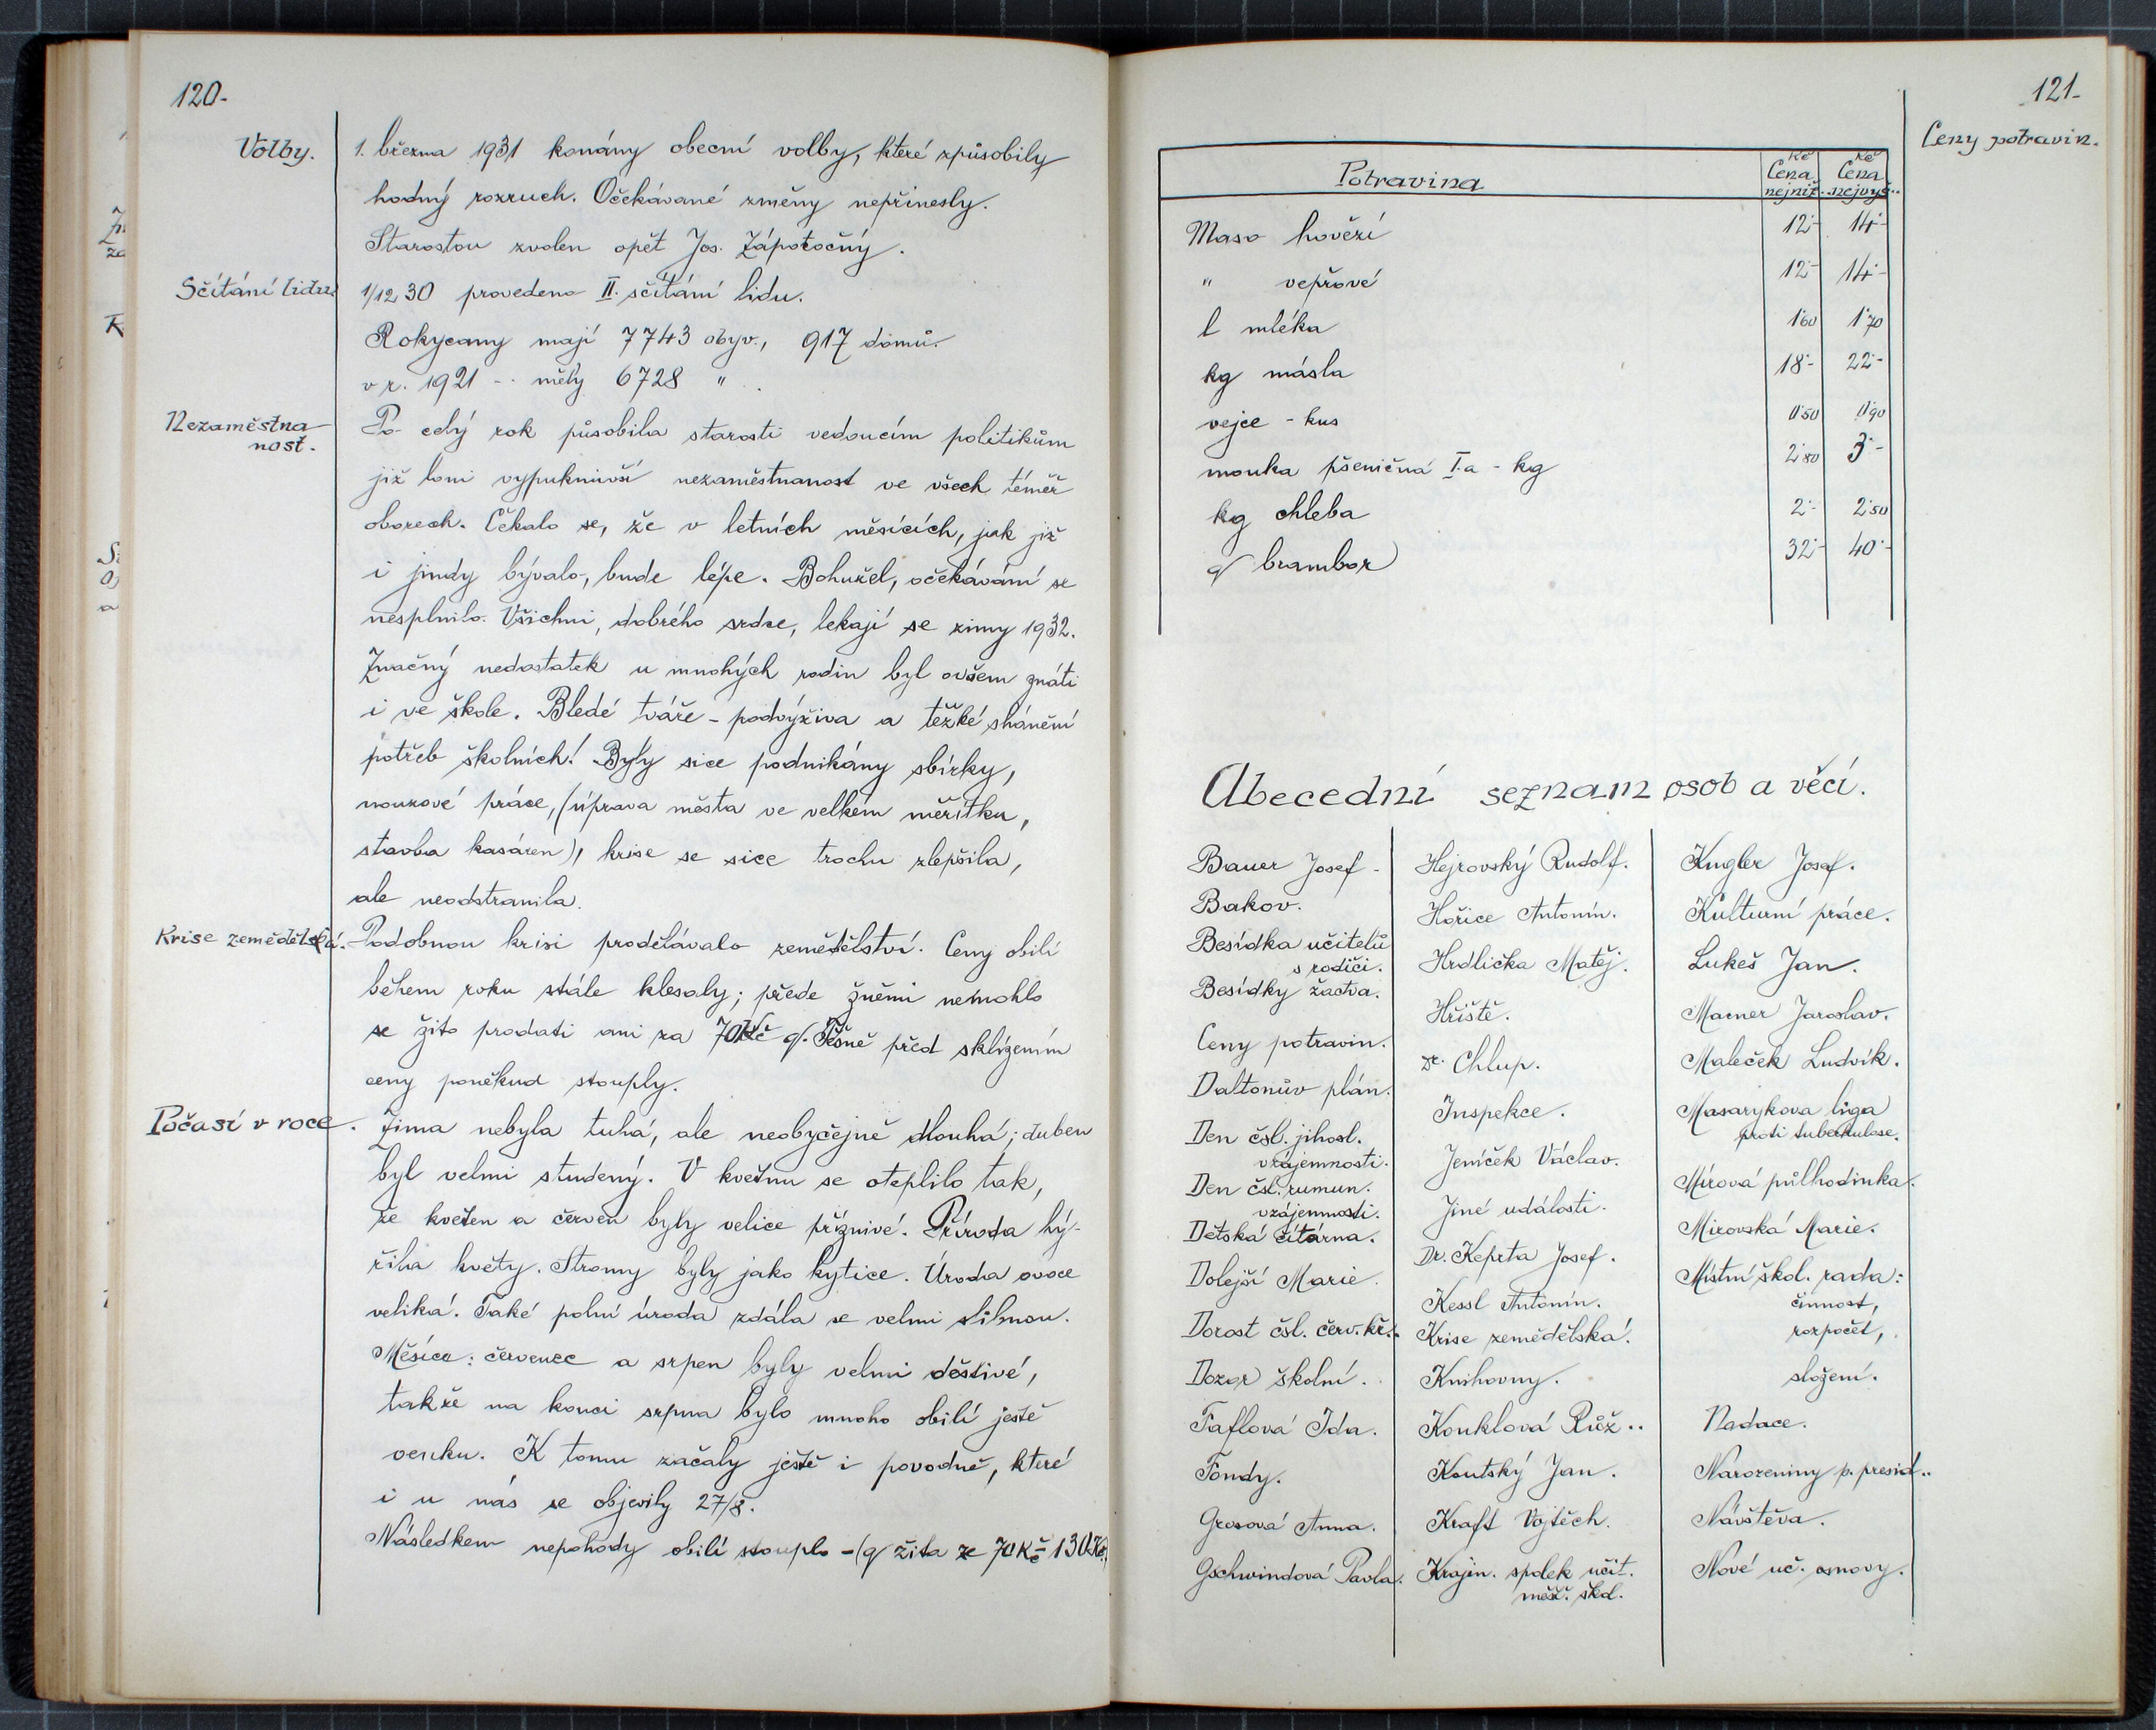 120-
Volby.
1. března 1931 konány obecní volby, které způsobily
hodný rozruch. Očekávané změny nepřinesly.
Starostou zvolen opět Jos. Zápotočný.
Sčítání lidu.
1/12 30 provedeno II. sčítání lidu.
Rokycany mají 7743 obyv., 917 domů.
v r. 1921 -- měly 6728 "
Nezaměstna-
nost.
Po celý rok působila starosti vedoucím politikům
již loni vypuknuvší nezaměstnanost ve všech téměř
oborech. Čekalo se, že v letních měsících, jak již
i jindy bývalo, bude lépe. Bohužel, očekávání se
nesplnilo. Všichni, dobrého srdce, lekají se zimy 1932.
Značný nedostatek u mnohých rodin byl ovšem znáti
i ve škole. Bledé tváře - podvýživa a těžké shánění
potřeb školních! Byly sice podnikány sbírky,
nouzové práce, (úprava města ve velkém měřítku,
stavba kasáren), krise se sice trochu zlepšila,
ale neodstranila.
Krise zemědělská.
Podobnou krisi prodělávalo zemědělství. Ceny obilí
během roku stále klesaly; přede žněmi nemohlo
se žito prodati ani za 70Kč q. Těsně před sklizením
ceny poněkud stouply.
Počasí v roce.
Zima nebyla tuhá, ale neobyčejně dlouhá; duben
byl velmi studený. V květnu se oteplilo tak,
že květen a červen byly velice příznivé. Příroda hý-
řila květy. Stromy byly jako kytice. Úroda ovoce
veliká. Také polní úroda zdála se velmi slibnou.
Měsíce: červenec a srpen byly velmi deštivé,
takže na konci srpna bylo mnoho obilí ještě
venku. K tomu začaly ještě i povodně, které
i u nás se objevily 27/8.
Následkem nepohody obilí stouplo - (q žita ze 70 Kč - 130Kč.
121-
Ceny potravin.
Potravina
Kč Cena nejniž.
Kč Cena nejvyš..
Maso hovězí 12·- 14·-
" vepřové 12·- 14·-
l mléka 1·60 1·70
kg másla 18·- 22·-
vejce - kus 0·50 0·90
mouka pšeničná I.a - kg 2·80 3·-
kg chleba 2·- 2·50
q brambor 32·- 40·-
Abecední seznam osob a věcí.
Bauer Josef -
Bakov.
Besídka učitelů
s rodiči.
Besídky žactva.
Ceny potravin.
Daltonův plán.
Den čsl. jihosl.
vzájemnosti.
Den čsl. rumun.
vzájemnosti.
Dětská čítárna.
Dolejší Marie.
Dorost čsl. červ. kř..
Dozor školní.
Faflová Ida.
Fondy.
Grosová Anna.
Gschwindová Pavla.
Hejrovský Rudolf.
Hořice Antonín.
Hrdlička Matěj.
Hřiště.
Dr. Chlup.
Inspekce.
Jeníček Václav.
Jiné události.
Dr. Keprta Josef.
Kessl Antonín.
Krise zemědělská.
Knihovny.
Konklová Růž..
Koutský Jan.
Kraft Vojtěch.
Krajin. spolek učit.
měšť. škol.
Kugler Josef.
Kulturní práce.
Lukeš Jan.
Macner Jaroslav.
Maleček Ludvík.
Masarykova liga
proti tuberkulose.
Mírová půlhodinka.
Mirovská Marie.
Místní škol. rada:
činnost,
rozpočet,
složení.
Nadace.
Narozeniny p. presid..
Návštěva.
Nové uč. osnovy.